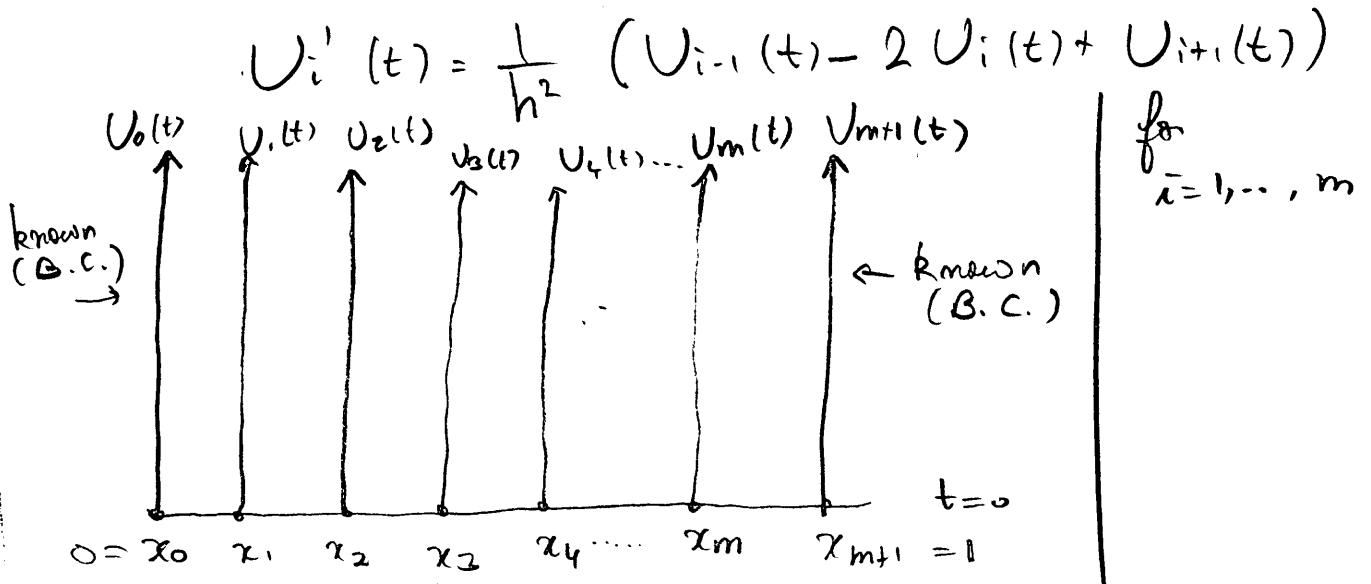 U_i'(t) = 1/h² (U_{i-1}(t) - 2 U_i(t) + U_{i+1}(t))
U_0(t) U_1(t) U_2(t) U_3(t) U_4(t) ... U_m(t) U_{m+1}(t)
for
i = 1, .. , m
known
(B.C.)
→
← known
(B.C.)
t=0
0 = x_0 x_1 x_2 x_3 x_4 ..... x_m x_{m+1} = 1